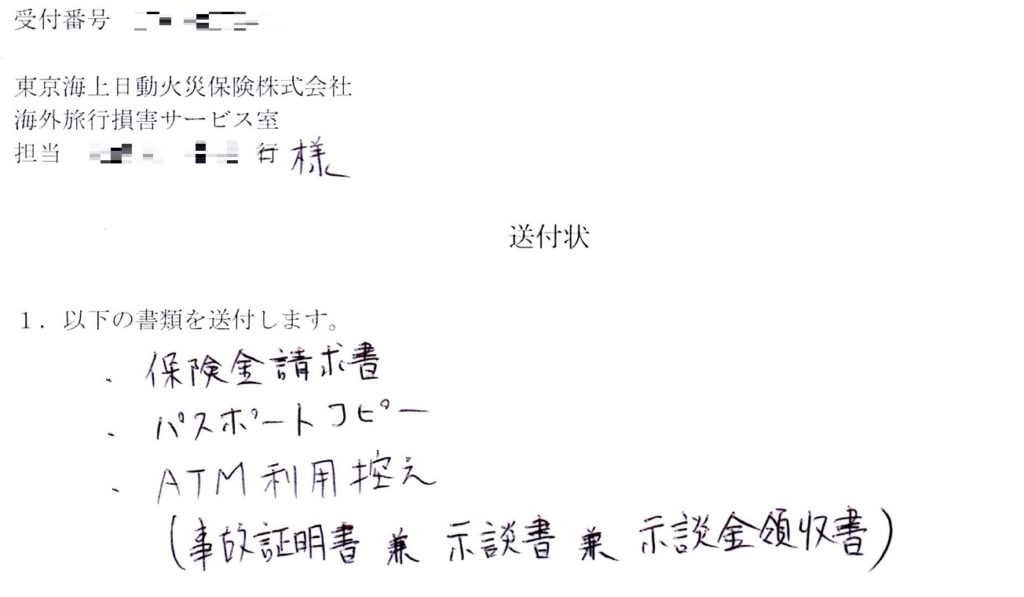 受付番号
東京海上日動火災保険株式会社
海外旅行損害サービス室
担当 行 様
送付状
１．以下の書類を送付します。
・保険金請求書
・パスポートコピー
・ATM利用控え
(事故証明書 兼 示談書 兼 示談金領収書)